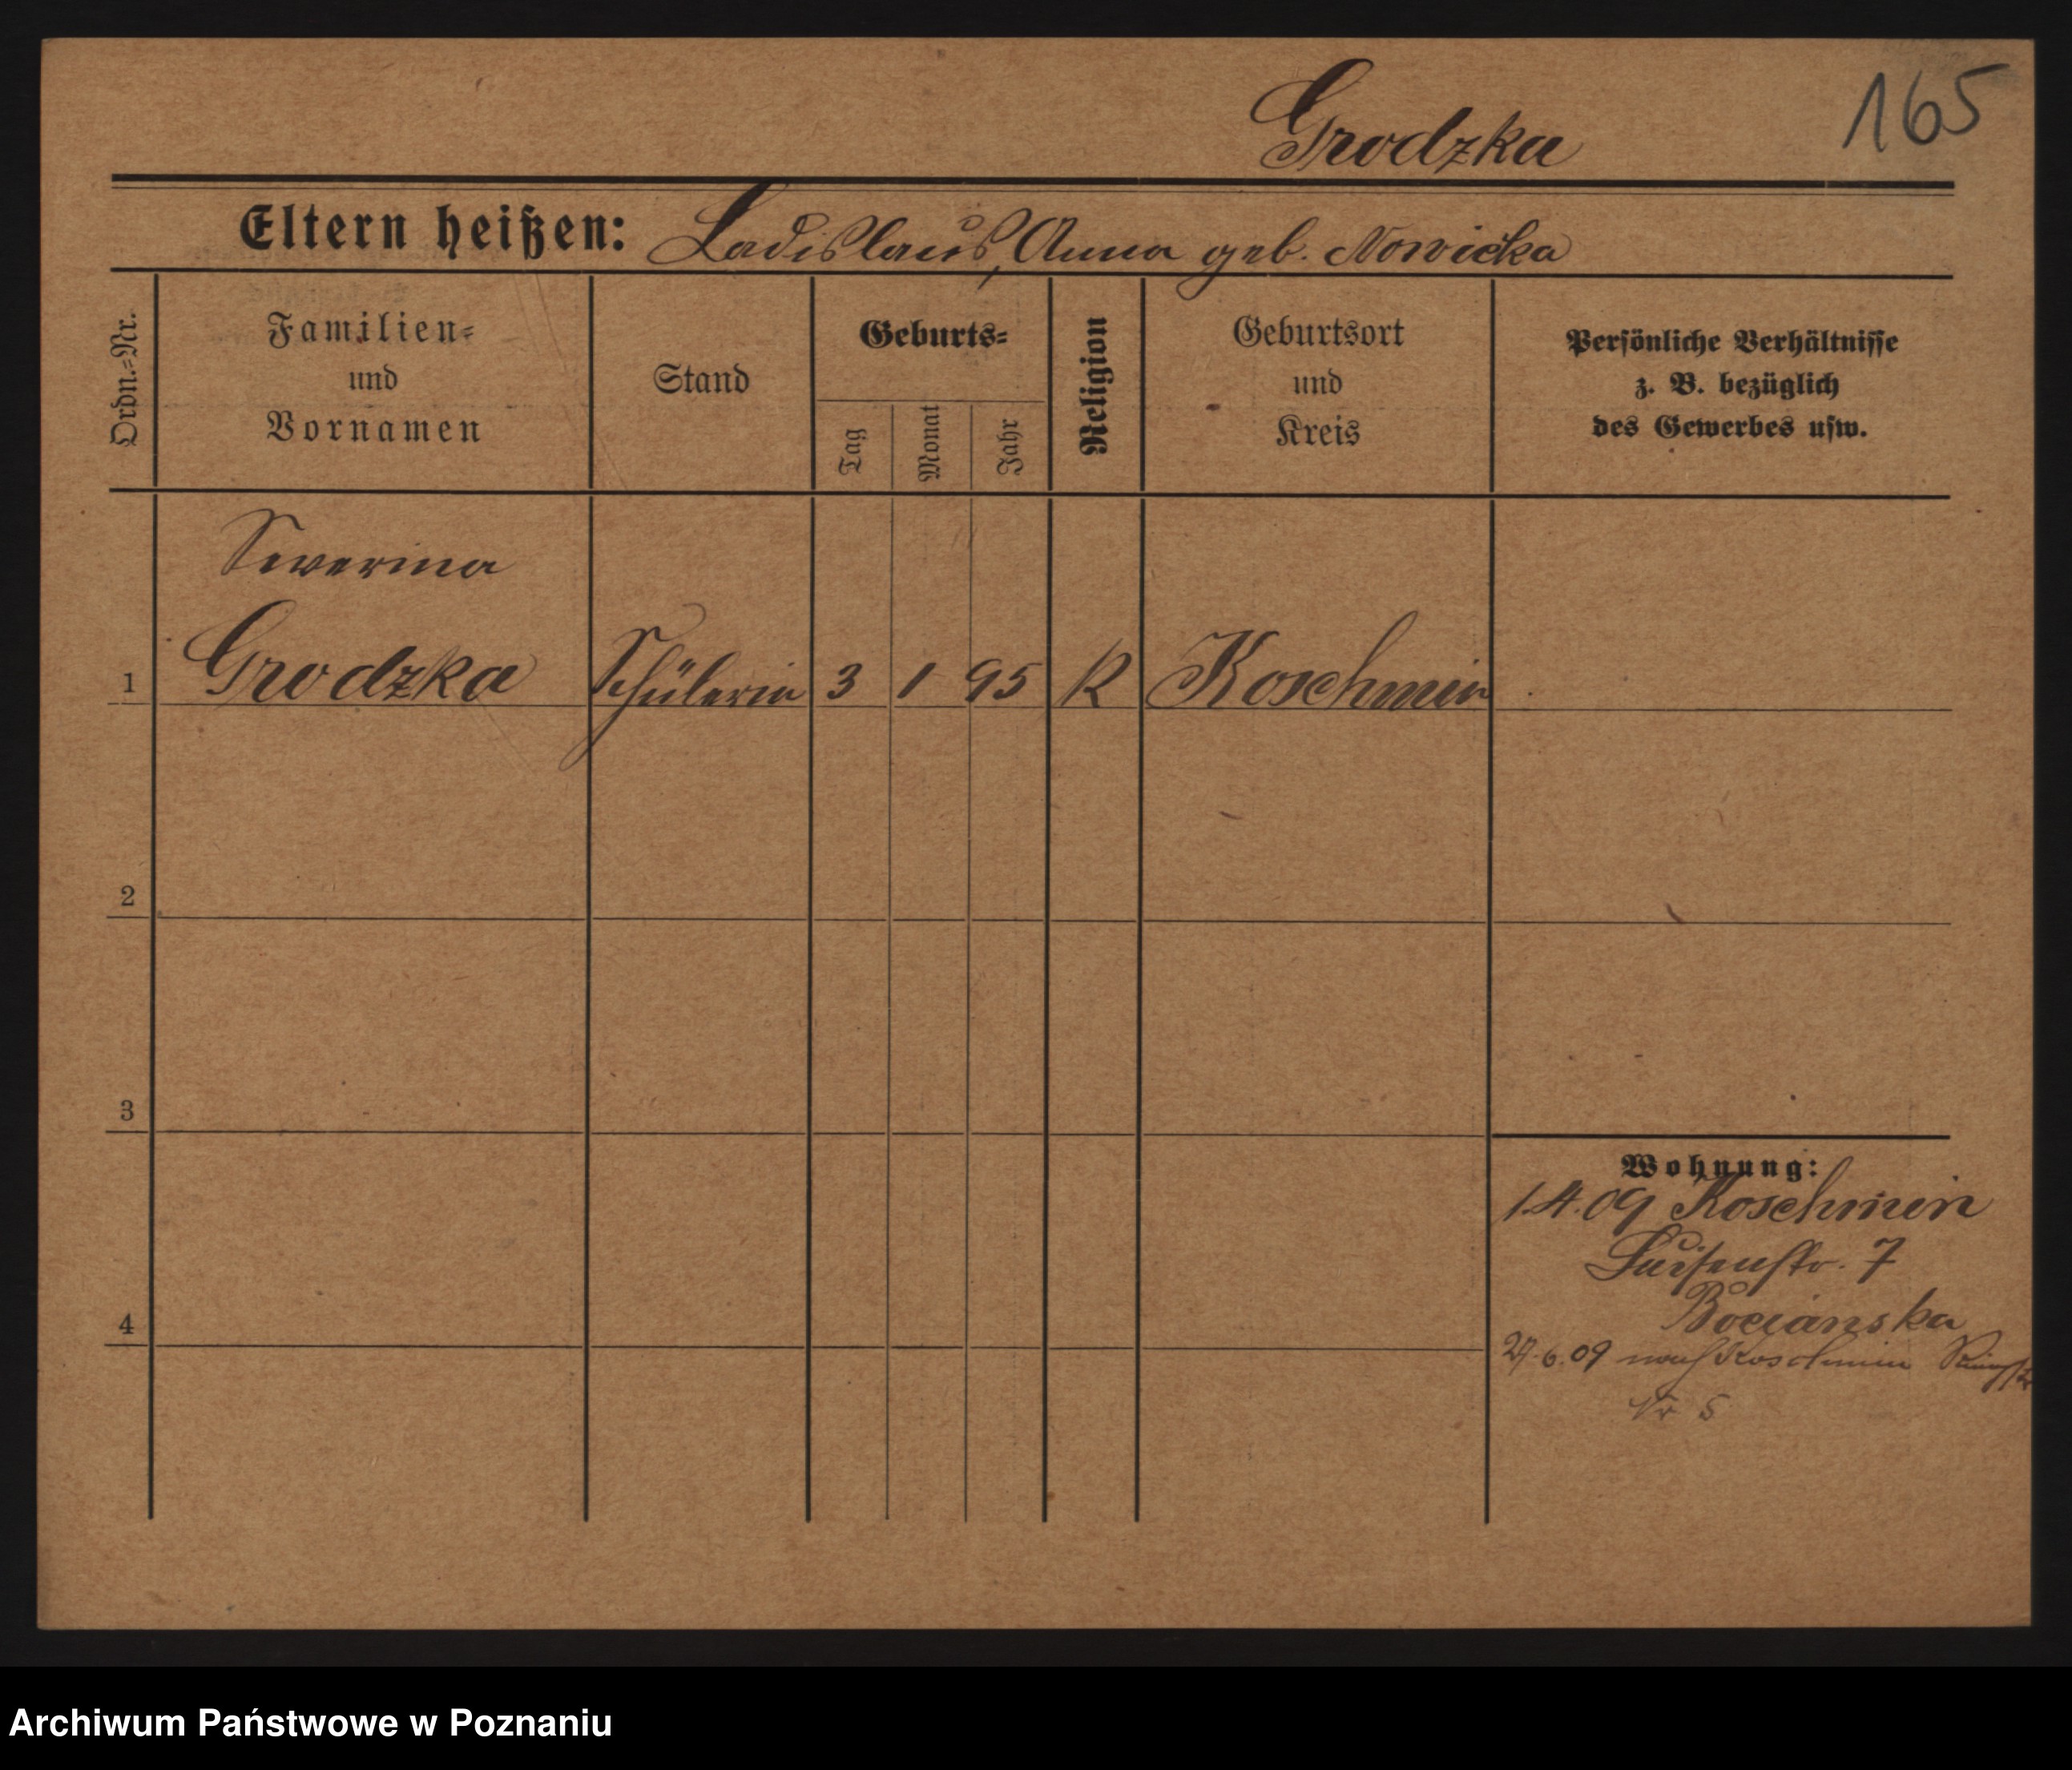 Grodzka
165
Eltern heißen: Ladislaus, Anna geb. Nowicka
Ordn.=Nr.
Familien=
und
Vornamen
Stand
Geburts=
Tag
Monat
Jahr
Religion
Geburtsort
und
Kreis
Persönliche Verhältnisse
z. B. bezüglich
des Gewerbes usw.
Severina
1 Grodzka Schülerin 3 1 95 R Koschmin
2
3
Wohnung:
1.4.09 Koschmin
Luisenstr. 7
Bocianska
4
29.6.09 nach Koschmin
Nr 5
Archiwum Państwowe w Poznaniu